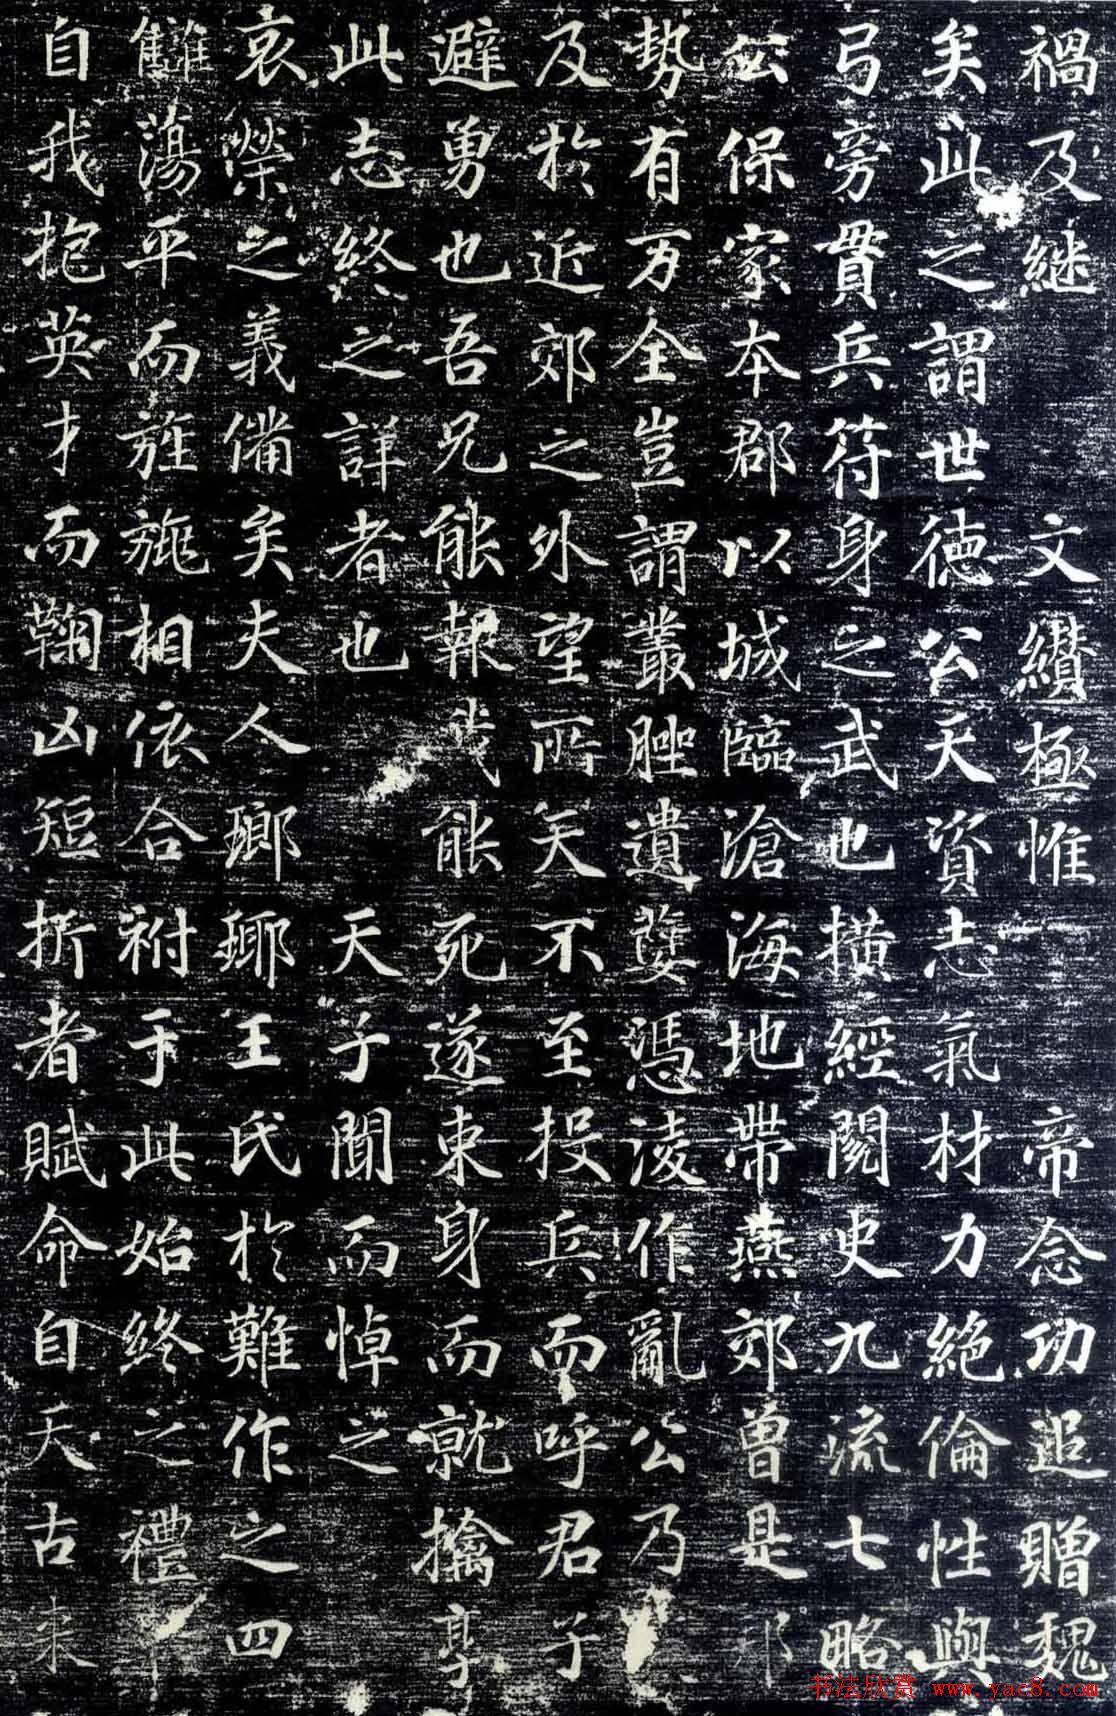 禍及継文纘極惟帝念功追贈魏
矣此之謂世徳公天資志氣材力絶倫性與
弓旁貫兵符身之武也橫經閱史九流七略
公保家本郡以城臨滄海地帶燕郊曾是
勢有万全豈謂叢脞遺孽馮淩作亂公乃
及於近郊之外望所矢不至投兵而呼君子
避勇也吾兄能報我能死遂束身而就擒享
此志終之詳者也天子聞而悼之
哀榮之義備矣夫人瑯瑘王氏於難作之四
讎蕩平而旌旐相依合祔于此始終之禮
自我抱英才而鞠凶短折者賦命自天古未
书法欣赏 www.yac8.com